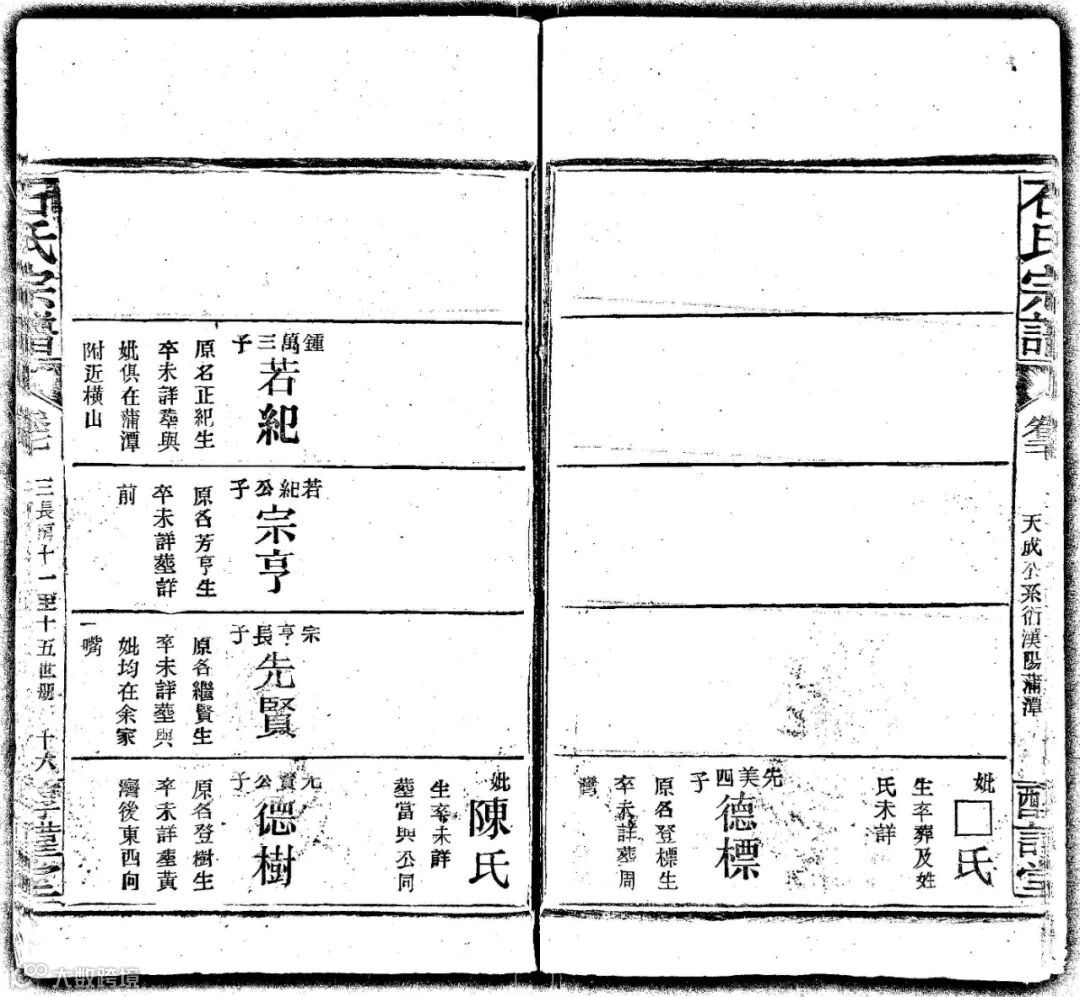 石氏宗譜
卷三
天成公系衍漢陽蒲潭
妣
□氏
生卒葬及姓
氏未詳
先美四子
德標
原名登標生
卒未詳葬周
灣
妣
陳氏
生卒未詳
葬當與公同
鍾萬三子
若紀
原名正紀生
卒未詳葬與
妣俱在蒲潭
附近橫山
若紀公子
宗亨
原名芳亨生
卒未詳葬詳
前
宗亨長子
先賢
原名繼賢生
卒未詳葬與
妣均在余家
嘴
先賢公子
德樹
原名登樹生
卒未詳葬黃
灣後東西向
石氏宗譜
三長房十一至十五世冊
十六
大数跨境